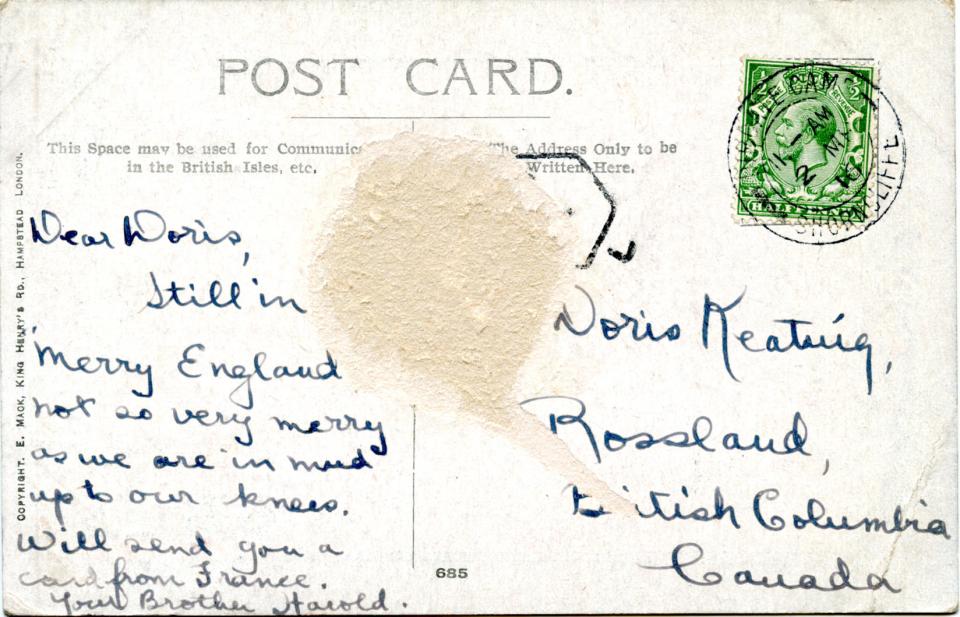 POST CARD.
This Space may be used for Communic
in the British Isles, etc.
The Address Only to be
Written Here.
COPYRIGHT. E. MACK, KING HENRY'S RD., HAMPSTEAD LONDON.
Dear Doris,
Still in
Merry England
not so very merry
as we are in mud
up to our knees.
Will send you a
card from France.
Your Brother Harold.
Doris Keating,
Rossland,
B itish Columbia
Canada
685
SHORNCLIFFE
11 AM
2